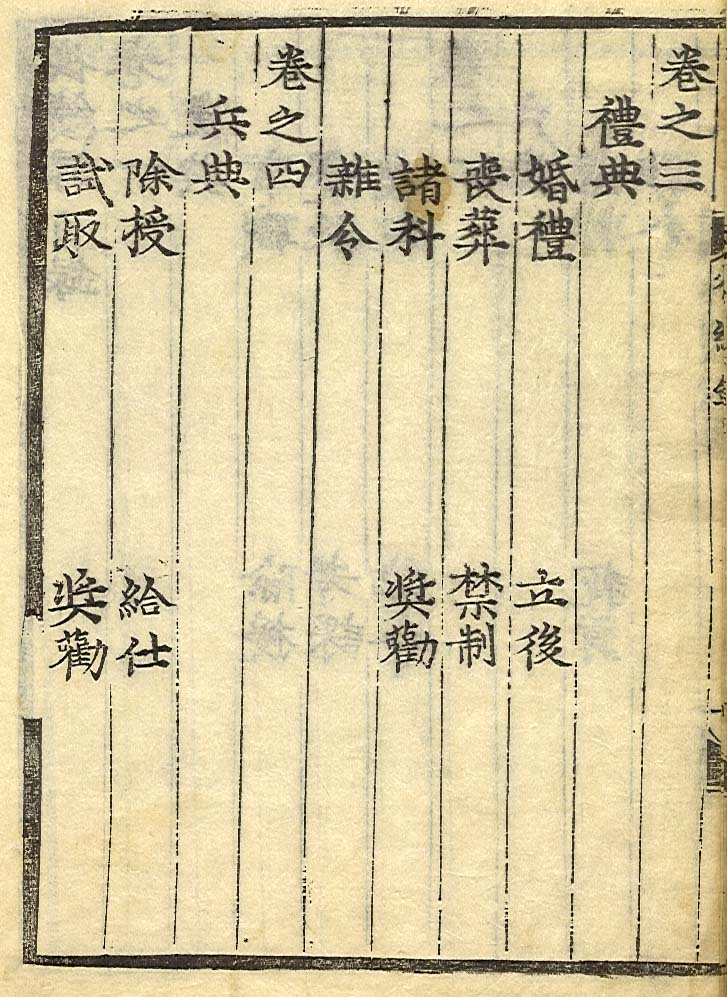 卷之三
禮典
婚禮 立後
喪葬 禁制
諸科 奬勸
雜令
卷之四
兵典
除授 給仕
試取 奬勸